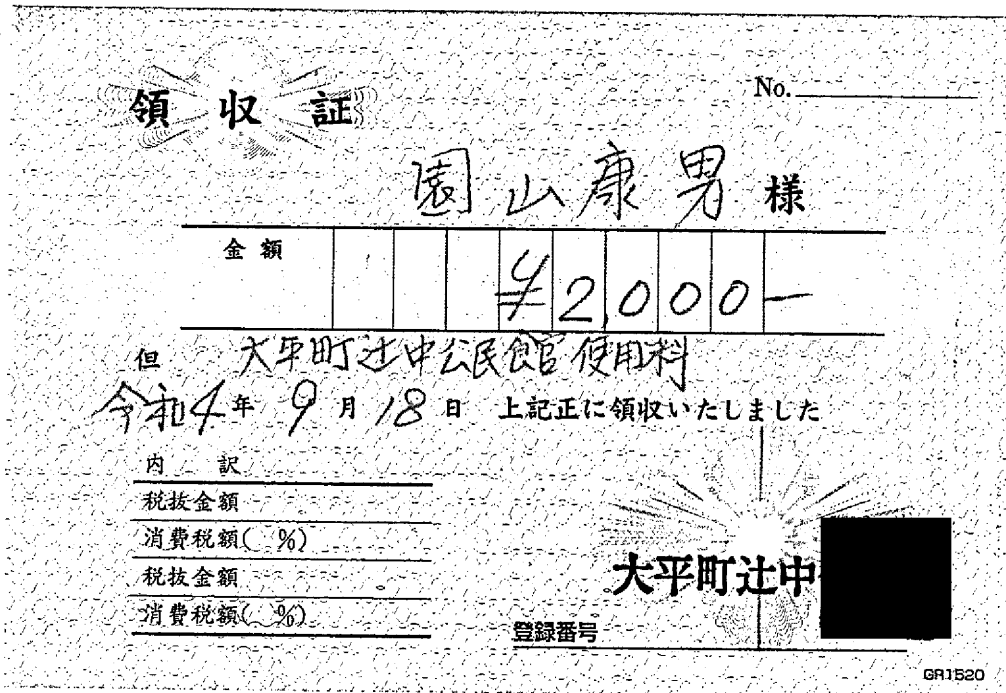 領収証
No.
園山康男様
金額 ¥2,000-
但 大平町辻中公民館使用料
令和4年9月18日 上記正に領収いたしました
内訳
税抜金額
消費税額( %)
税抜金額
消費税額( %)
大平町辻中
登録番号
GR1520